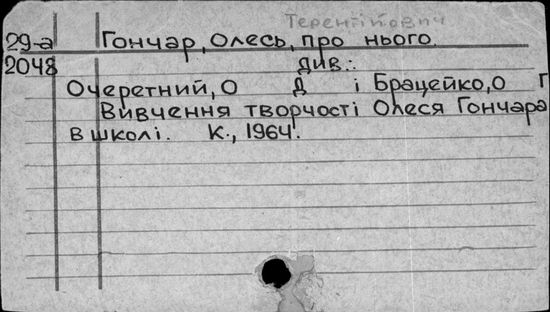 Терентійович
29-а Гончар, Олесь, про нього.
2048 див.:
Очеретний, О Д і Брацейко, О Г
Вивчення творчості Олеся Гончара
в школі. К., 1964.